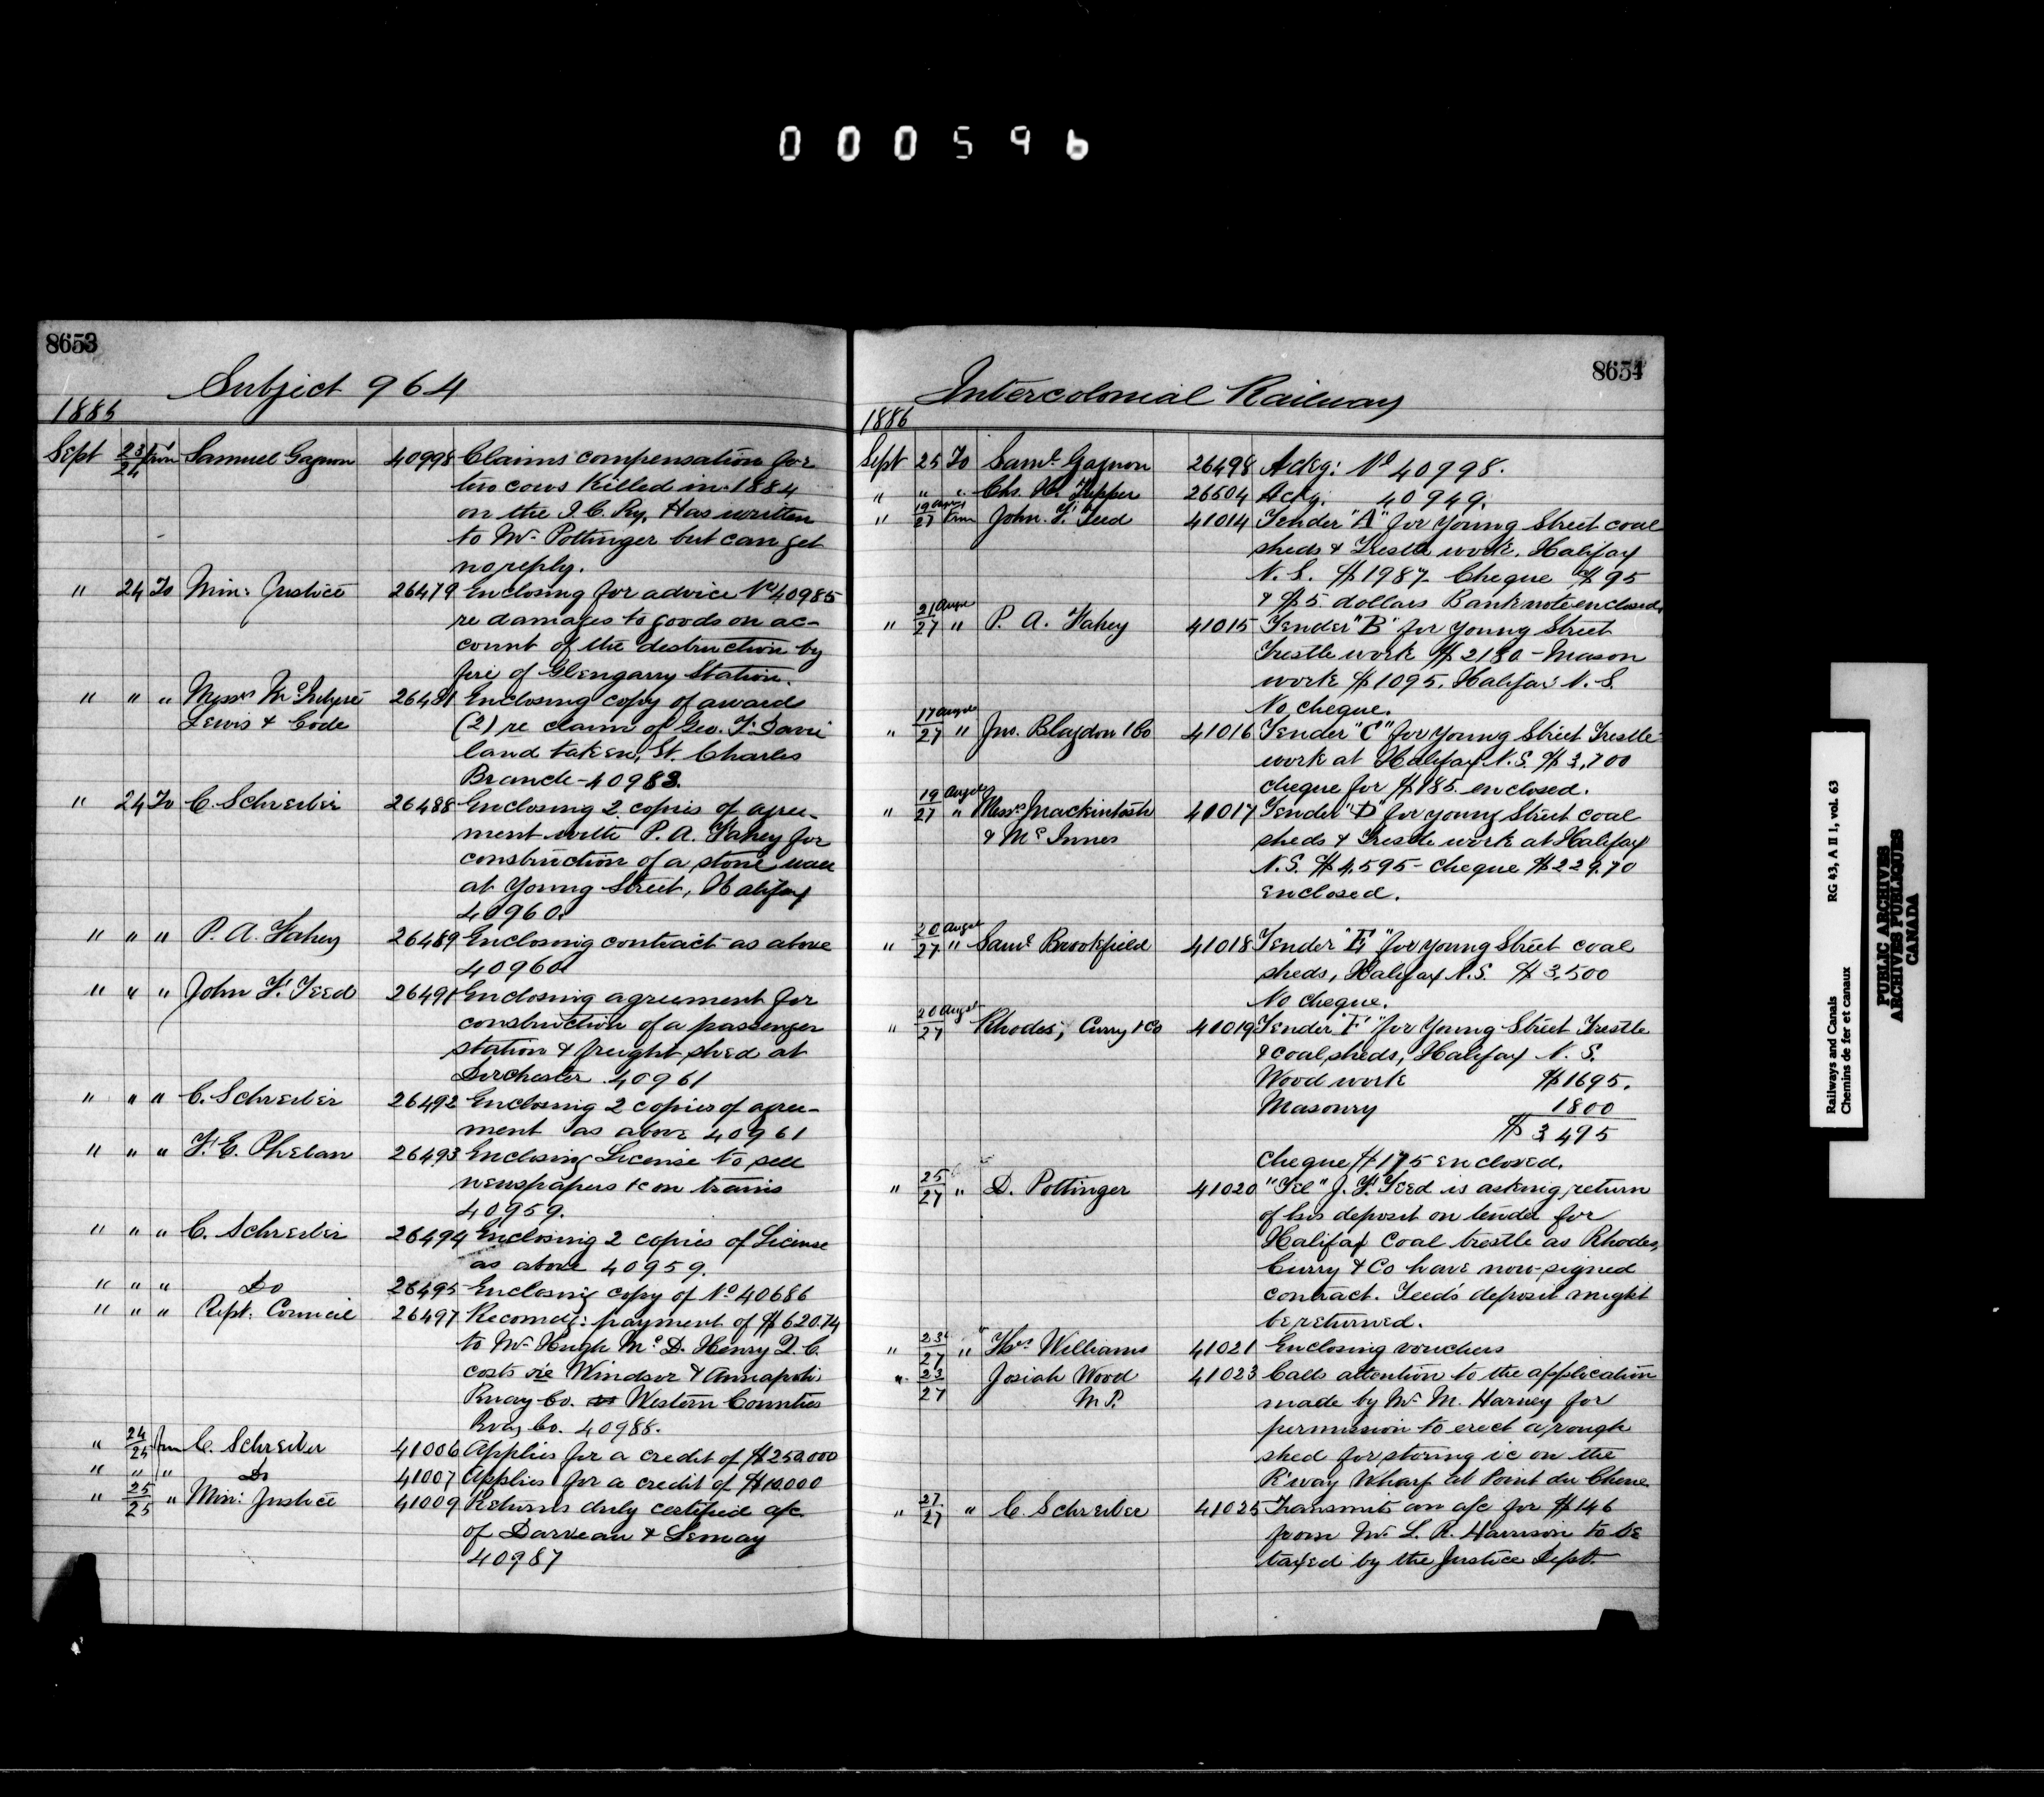 000596
8653
Subject 964
1886
Sept 23/24 from Samuel Gagnon 40998 Claims compensation for
two cows killed in 1884
on the I. C. Ry. Has written
to Mr. Pottinger but can get
no reply.
" 24 To Min: Justice 26479 Enclosing for advice No 40985
re damages to goods on ac-
count of the destruction by
fire of Glengarry Station.
" " " Messrs McIntyre 26481 Enclosing copy of awards
Lewis & Code (2) re claim of Geo. T. Davie
land taken, St. Charles
Branch - 40983.
" 24 To C. Schreiber 26488 Enclosing 2 copies of agree-
ment with P. A. Fahey for
construction of a stone wall
at Young Street, Halifax
40960.
" " " P. A. Fahey 26489 Enclosing contract as above
40960
" " " John F. Teed 26491 Enclosing agreement for
construction of a passenger
station & freight shed at
Dorchester. 40961
" " " C. Schreiber 26492 Enclosing 2 copies of agree-
ment as above 40961
" " " F. E. Phelan 26493 Enclosing License to sell
newspapers &c on trains
40959.
" " " C. Schreiber 26494 Enclosing 2 copies of License
as above 40959.
" " " Do 26495 Enclosing copy of No 40686
" " " Rept. Council 26497 Recomdg: payment of $620.74
to Mr. Hugh McD. Henry Q. C.
costs re Windsor & Annapolis
Rway Co. Western Counties
Rway Co. 40988.
" 24/25 from C. Schreiber 41006 Applies for a credit of $250.000
" " " Do 41007 Applies for a credit of $10.000
" 25/25 " Min: Justice 41009 Returns duly certified a/c.
of Darveau & Lemay
40987
8654
Intercolonial Railway
1886
Sept 25 To Saml. Gagnon 26498 Ackg: No 40998.
" " " Chs. H. Tupper 26504 Ackg. 40949.
" 19 Augst/27 from John F. Teed 41014 Tender "A" for Young Street coal
sheds & Trestle work. Halifax
N. S. $1987 Cheque $95
& $5. dollars Bank note enclosed.
" 21 Augst/27 " P. A. Fahey 41015 Tender "B" for Young Street
Trestle work $2180 - Mason
work $1095. Halifax N. S.
No cheque.
" 17 Augst/27 " Jno. Blagdon & Co 41016 Tender "C" for Young Street Trestle
work at Halifax N. S. $3,700
cheque for $185. enclosed.
" 19 Augst/27 " Messrs Mackintosh 41017 Tender "D" for Young Street coal
& McInnes sheds & Trestle work at Halifax
N. S. $4,595 - Cheque $229.70
enclosed.
" 20 Augst/27 " Saml. Brookfield 41018 Tender "E" for Young Street coal
sheds, Halifax N. S. $3,500
No cheque.
" 20 Augst/27 Rhodes, Curry & Co 41019 Tender "F" for Young Street Trestle
& coal sheds, Halifax N. S.
Wood work $1695.
Masonry 1800
$3,495
Cheque $175 enclosed.
" 25/27 " D. Pottinger 41020 "Tel" J. F. Teed is asking return
of his deposit on tender for
Halifax coal trestle as Rhodes,
Curry & Co have now signed
contract. Teed's deposit might
be returned.
" 23/27 " Thos. Williams 41021 Enclosing vouchers
" 23/27 Josiah Wood 41023 Calls attention to the application
M. P. made by Mr. M. Harney for
permission to erect a rough
shed for storing ice on the
R'way Wharf at Point du Chene
" 27/27 " C. Schreiber 41025 Transmits an a/c for $146
from Mr. L. R. Harrison to be
taxed by the Justice Dept.
Railways and Canals RG 43, A II 1, vol. 63
Chemins de fer et canaux
PUBLIC ARCHIVES
ARCHIVES PUBLIQUES
CANADA